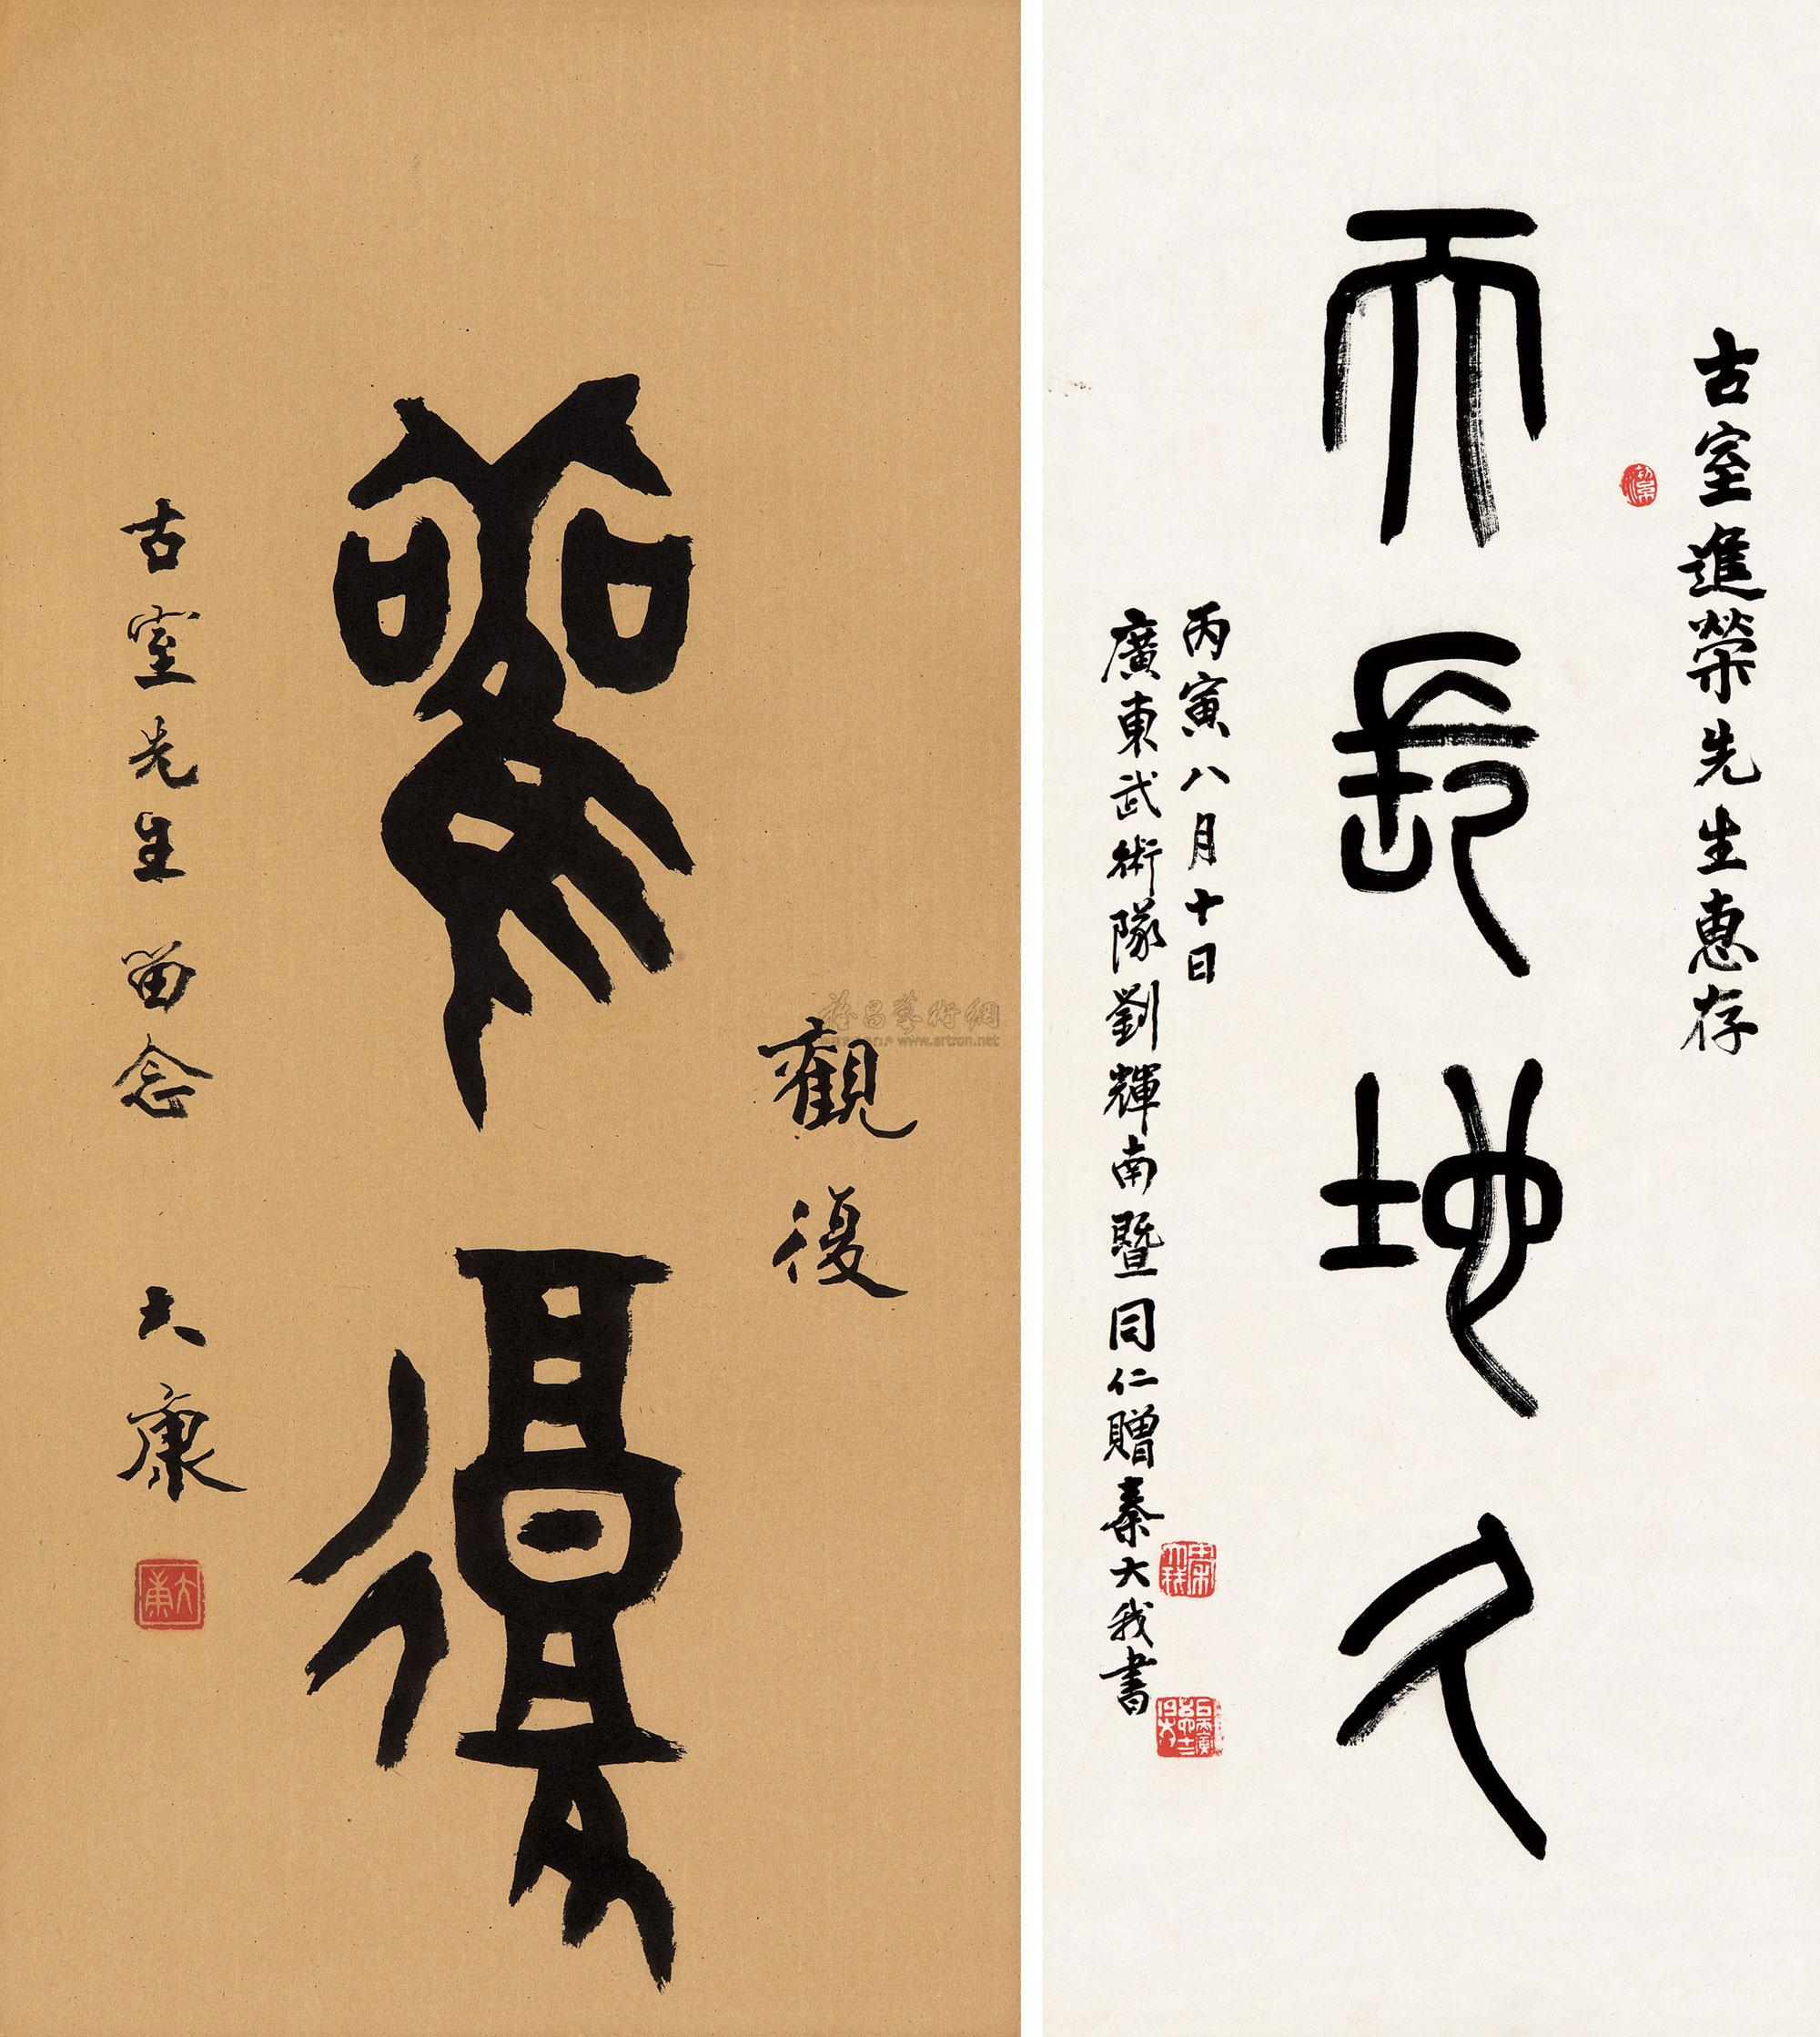 觀復
雚復
古室先生留念 大康
大康
雅昌藝術網
www.artron.net
古室進榮先生惠存
天長地久
丙寅八月十日
廣東武術隊劉輝南暨同仁贈秦大我書